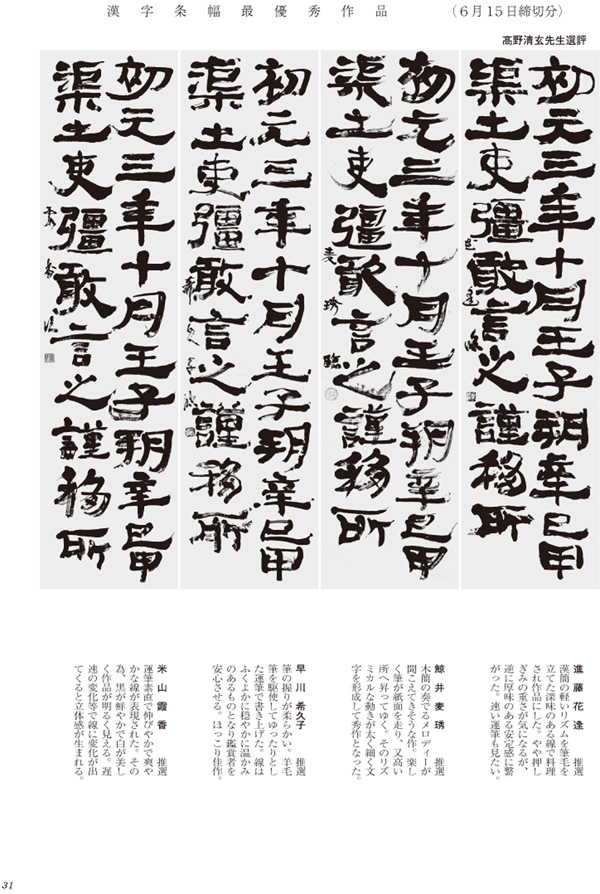 漢字条幅最優秀作品　（6月15日締切分）
髙野清玄先生選評
初元三年十月壬子朔辛巳甲
渠士吏彊敢言之謹移所
初元三年十月壬子朔辛巳甲
渠士吏彊敢言之謹移所
麦琇臨
初元三年十月壬子朔辛巳甲
渠士吏彊敢言之謹移所
初元三年十月壬子朔辛巳甲
渠士吏彊敢言之謹移所
進藤花逢　推選
漢簡の軽いリズムを筆毛を
立てた深味のある線で料理
され作品にした。やや押し
ぎみの重さが気になるが、
逆に厚味のある安定感に繋
がった。速い運筆も見たい。
鯨井麦琇　推選
木簡の奏でるメロディーが
聞こえてきそうな作。楽し
く筆が紙面を走り、又高い
所へ昇ってゆく。そのリズ
ミカルな動きが太く細く文
字を形成して秀作となった。
早川希久子　推選
筆の握りが柔らかい。羊毛
筆を駆使してゆったりとし
た運筆で書き上げた。線は
ふくよかに穏やかに温かみ
のあるものとなり鑑賞者を
安心させる。ほっこり佳作。
米山霞香　推選
運筆素直で伸びやかで爽や
かな線が表現された。その
為、黒が鮮やかで白が美し
く作品が明るく見える。遅
速の変化等で線に変化が出
てくると立体感が生まれる。
31